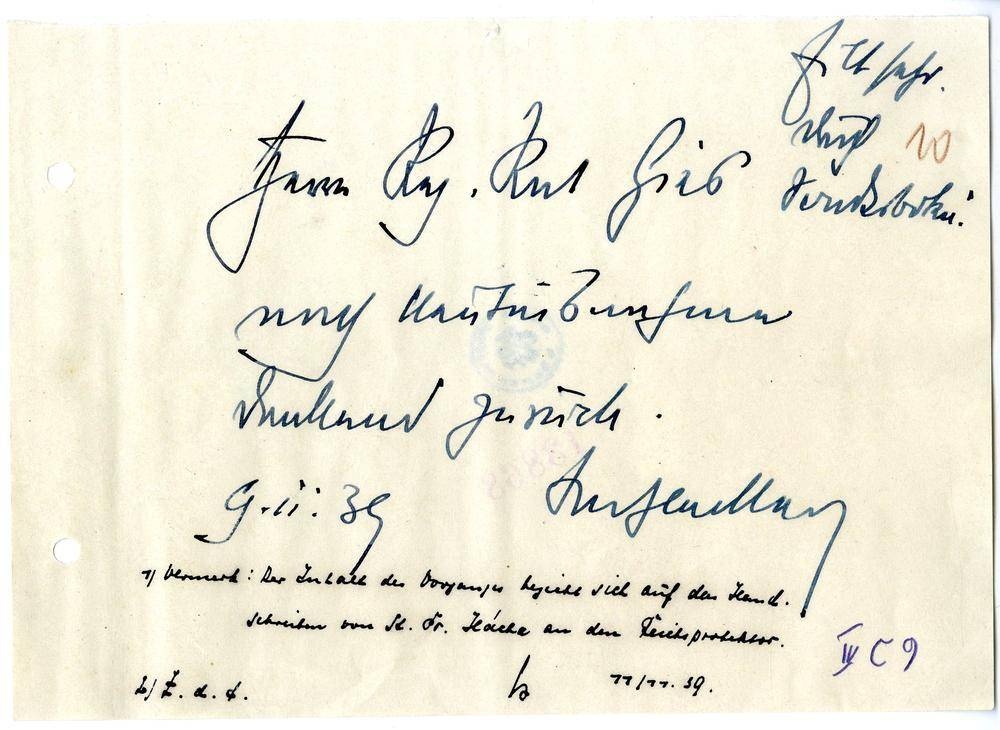 durch
10
Herrn Reg. Rat Gies
nach Kenntnisnahme
dankend zurück.
9.11.39
1) Vermerk: Der Inhalt des Vorganges bezieht sich auf das Hand-
schreiben von St. Pr. Hácha an den Reichsprotektor.
2) Z. d. A.
11/11. 39.
IV C 9